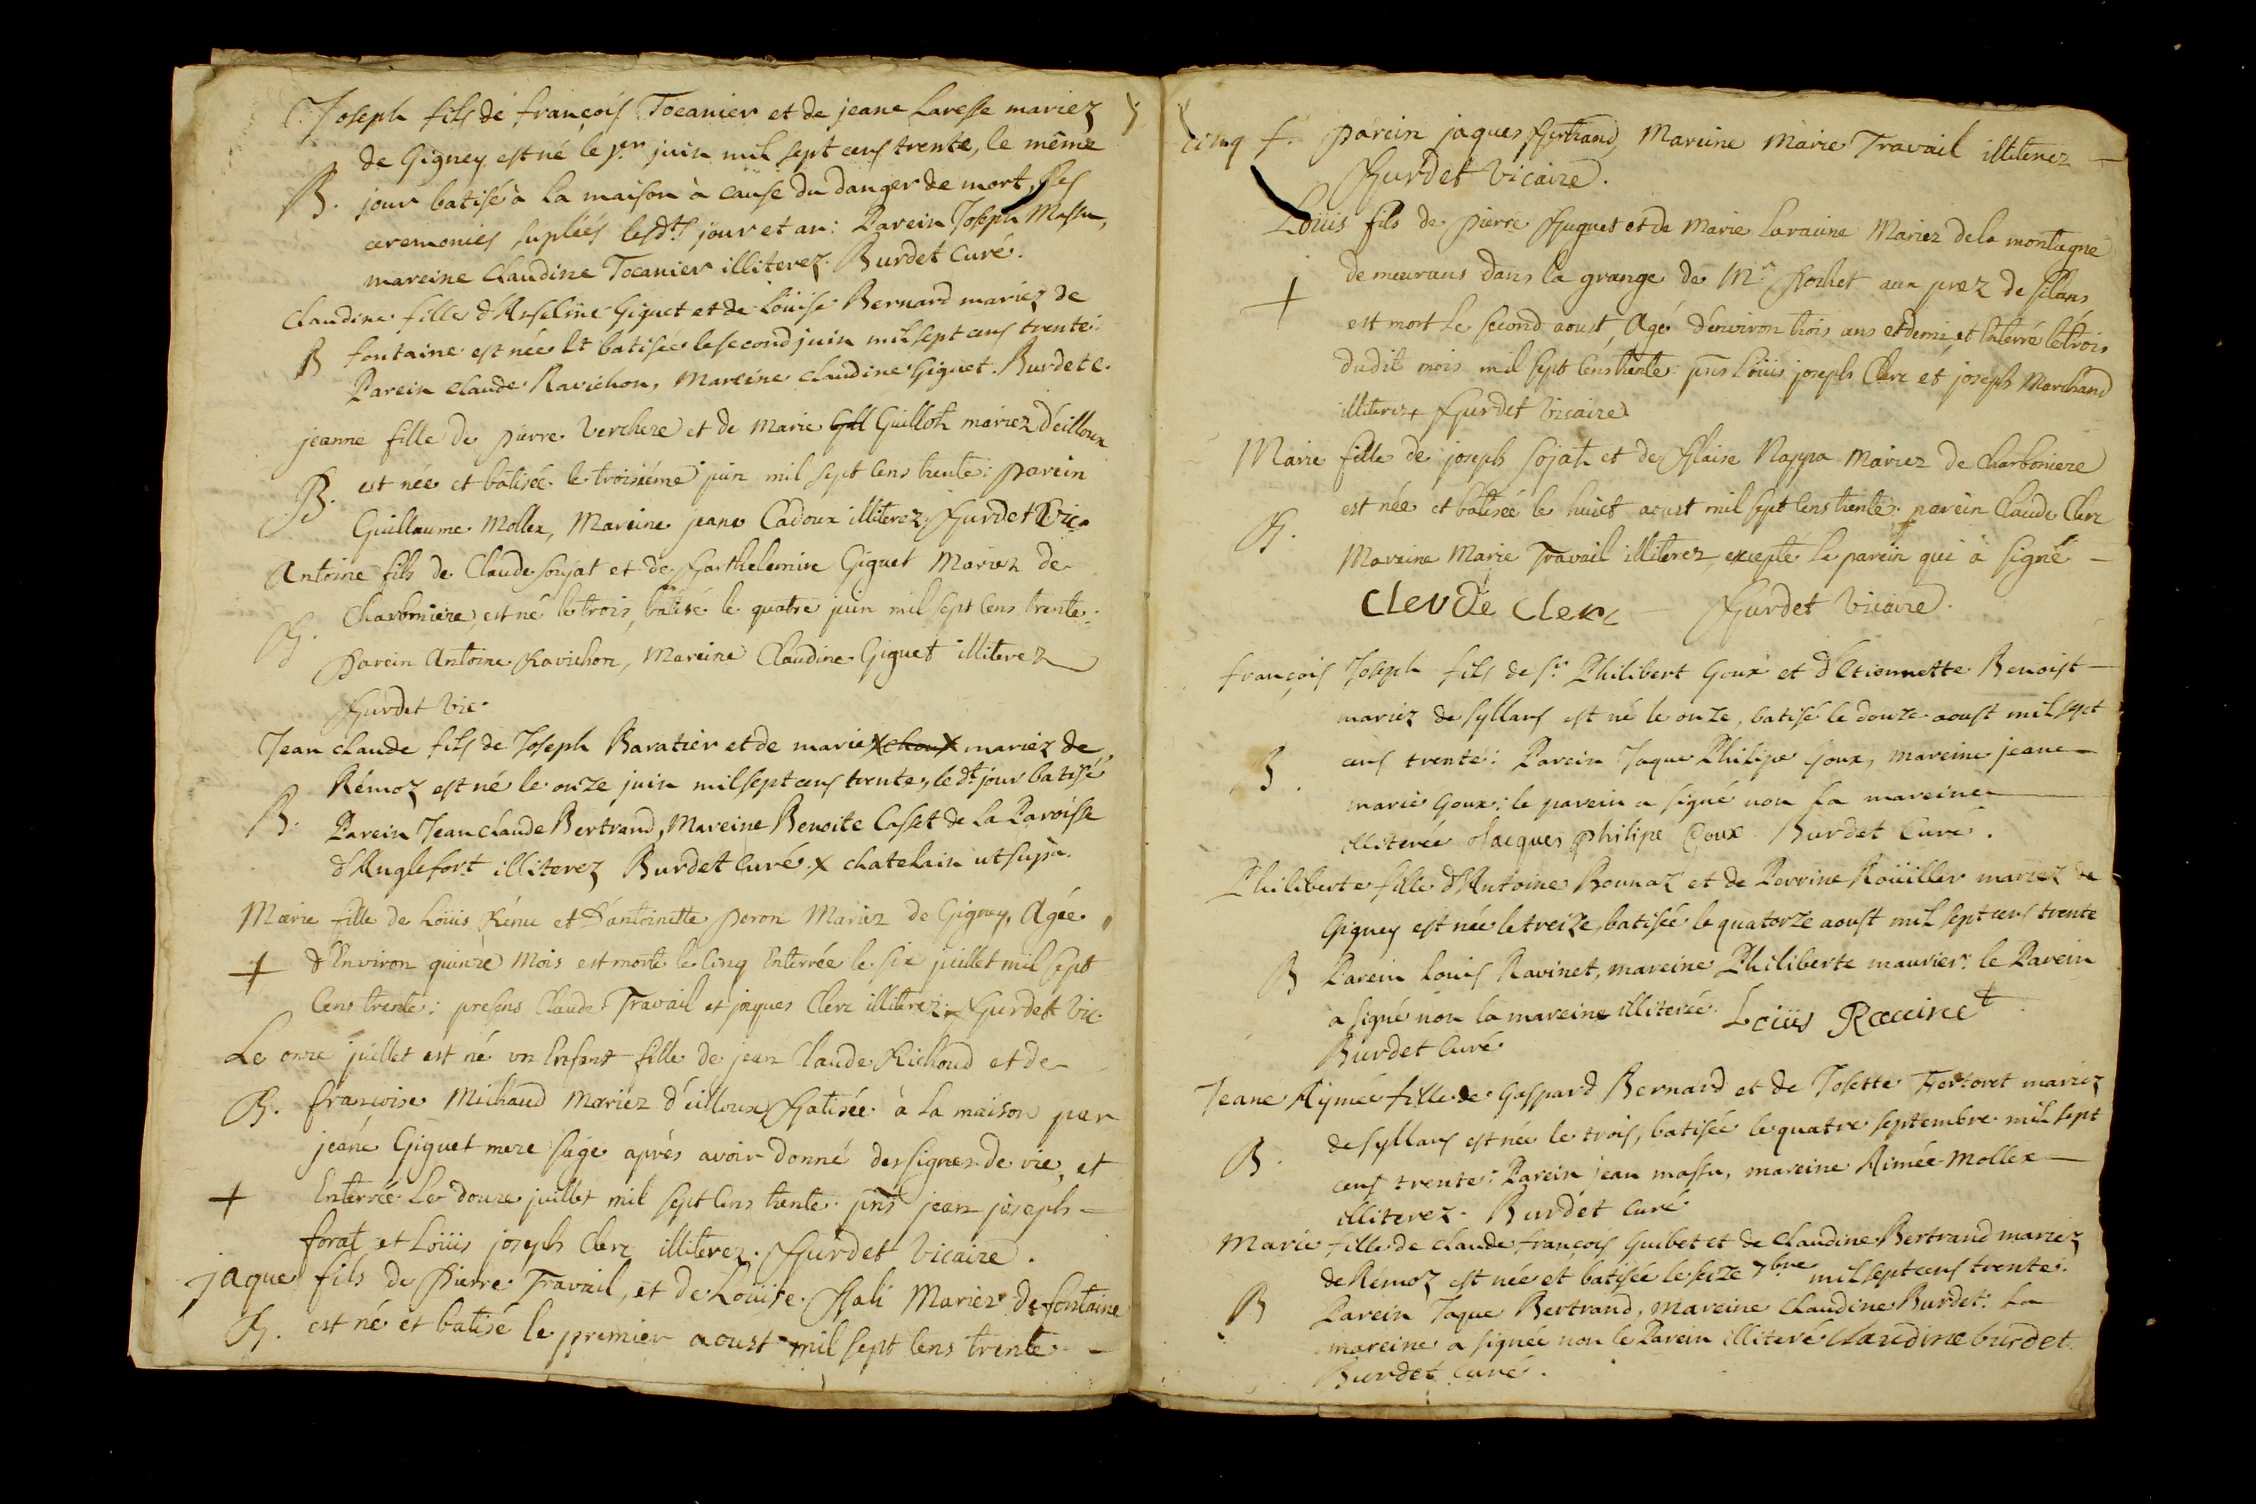 Joseph fils de françois Tocanier et de jeane Laresse mariez
de Gigney est né le per juin mil sept cens trente, le même
B. jour batisé à la maison à cause du danger de mort, les
ceremonies supleés lesdts jour et an: Parein Joseph Massu,
mareine Claudine Tocanier illiterez. Burdet Curé.
Claudine fille d'Anseline Giguet et de Loüise Bernard mariez de
B fontaine est née et batisée le second juin mil sept cens trente:
Parein claude Ravichon, mareine claudine Giguet. Burdet C.
jeanne fille de pierre Verchere et de Marie Gll Guilloh mariez d'eilloux
B. est née et batisée le troisiéme juin mil sept Cens trente: parein
Guillaume Mollex, Mareine jeane Cadoux illiterez. Burdet Vic.
Antoine fils de Claude sonjat et de Barthelemine Giguet Mariez de
B. Charboniere est né le trois, batisé le quatre juin mil sept Cens trente:
parein Antoine Ravichon, Mareine Claudine Giguet illiterez
Burdet Vic.
Jean claude fils de Joseph Baratier et de marie X choux X mariez de
Rémoz est né le onze juin mil sept cens trente, le dt jour batisé
B. Parein Jean claude Bertrand, Mareine Benoite Casset de la Paroisse
d'Anglefort illiterez Burdet Curé. X chatelain ut supa.
Marie fille de Loüis Rénu et d'antoinette peron Mariez de Gigney, Agée
+ d'Environ quinze Mois est morte le Cinq Enterrée le six juillet mil sept
Cens trente: presens Claude Travail et jaques Clerc illiterez. Burdet Vic.
Le onze juillet est né un Enfant fille de jean Claude Richoud et de
B. francoise Michaud Mariez d'eilloux Batisée à la maison par
jeane Giguet mere sage aprés avoir donné des signes de vie, et
+ Enterrée Le douze juillet mil sept Cens trente. pns jean joseph
forat et Loüis joseph Clerc illiterez. Burdet Vicaire.
jaque fils de Pierre Travail, et de Loüise Bali Mariez de fontaine
B. est né et batisé le premier aoust mil sept Cens trente
cinq f. parein jaques Bertrand, Mareine Marie Travail illiterez
Burdet Vicaire.
Loüis fils de pierre Huguet et de Marie Laraine Mariez de la montagne
demeurans dans la grange de Mr Rochet aux prez de silans
+ est mort le second aoust, Agé d'environ trois ans et demi, et Enterré le trois
dudit mois mil sept Cens trente: pns Loüis joseph Clerc et joseph Marchand
illiterez Burdet Vicaire
Marie fille de joseph sojah et de Blaise Nappa Mariez de Charboniere
est née et batisée le huict aoust mil sept Cens trente: parein Claude Clerc
B. Mareine Marie Travail illiterez, excepté le parein qui à signé
Cleude Clerc Burdet Vicaire.
françois Joseph fils de sr Philibert Goux et d'Etiennette Benoist
mariez de syllans est né le onze, batisé le douze aoust mil sept
B. cens trente: Parein Jaque Philipe Goux, mareine jeane
marie Goux: le parein a signé non la mareine
illiterée Jacques philipe Goux Burdet Curé.
Philiberte fille d'Antoine Bonnaz et de Perrine Roüiller mariez de
Gigney est née le treize, batisée le quatorze aoust mil sept cens trente
B Parein Louis Ravinet, mareine Philiberte maurier: le Parein
a signé non la mareine illiterée. Loüis Raeinet
Burdet Curé
Jeane Aymée fille de Gaspard Bernard et de Josette Tortoret mariez
de syllans est née le trois, batisée le quatre septembre mil sept
B. cens trente: Parein jean massu, mareine Aimée Mollex
illiterez. Burdet Curé
Marie fille de claude françois Guibet et de Claudine Bertrand mariez
de Rémoz est née et batisée le seize 7bre mil sept cens trente:
B Parein Jaque Bertrand, mareine Claudine Burdet: La
mareine a signée non le Parein illiteré Claudine burdet
Burdet Curé.